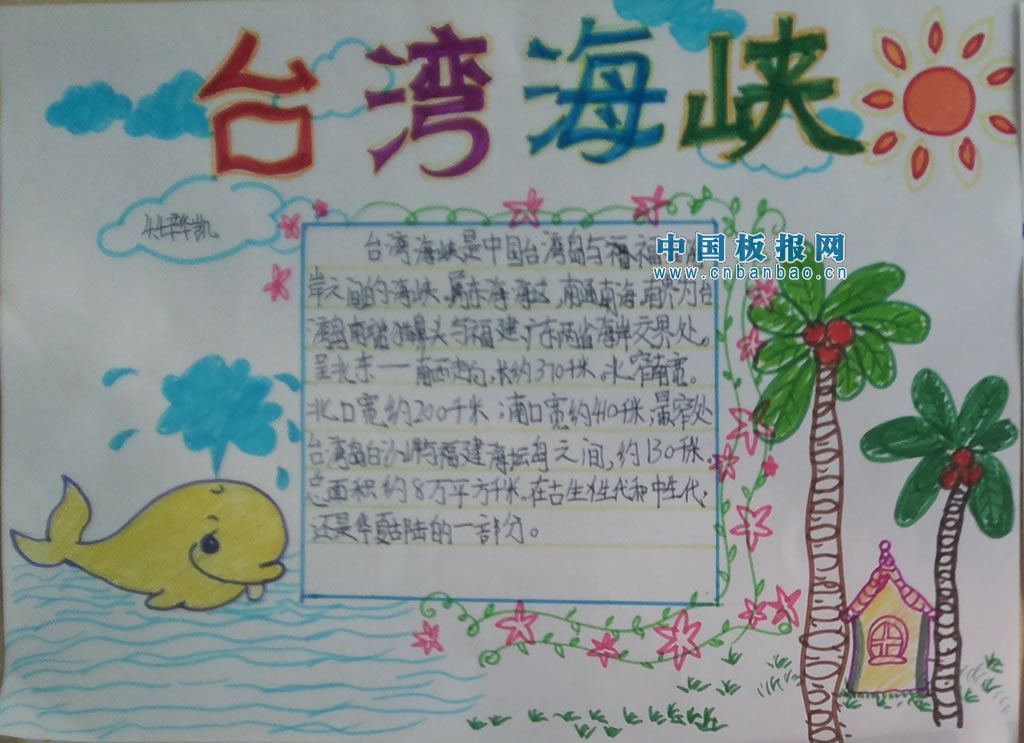 台湾海峡
台湾海峡是中国台湾岛与福
中国板报网
www.cnbanbao.cn
岸之间的海峡,属东海海区,南通南海,南界为台
湾岛南端猫鼻头与福建、广东两省海岸交界处。
呈北东——南西走向,长约370千米。北窄南宽。
北口宽约200千米;南口宽约410千米,最窄处
台湾岛白沙岬与福建海坛岛之间,约130千米。
总面积约8万平方千米。在古生代和中生代,
还是华夏古陆的一部分。